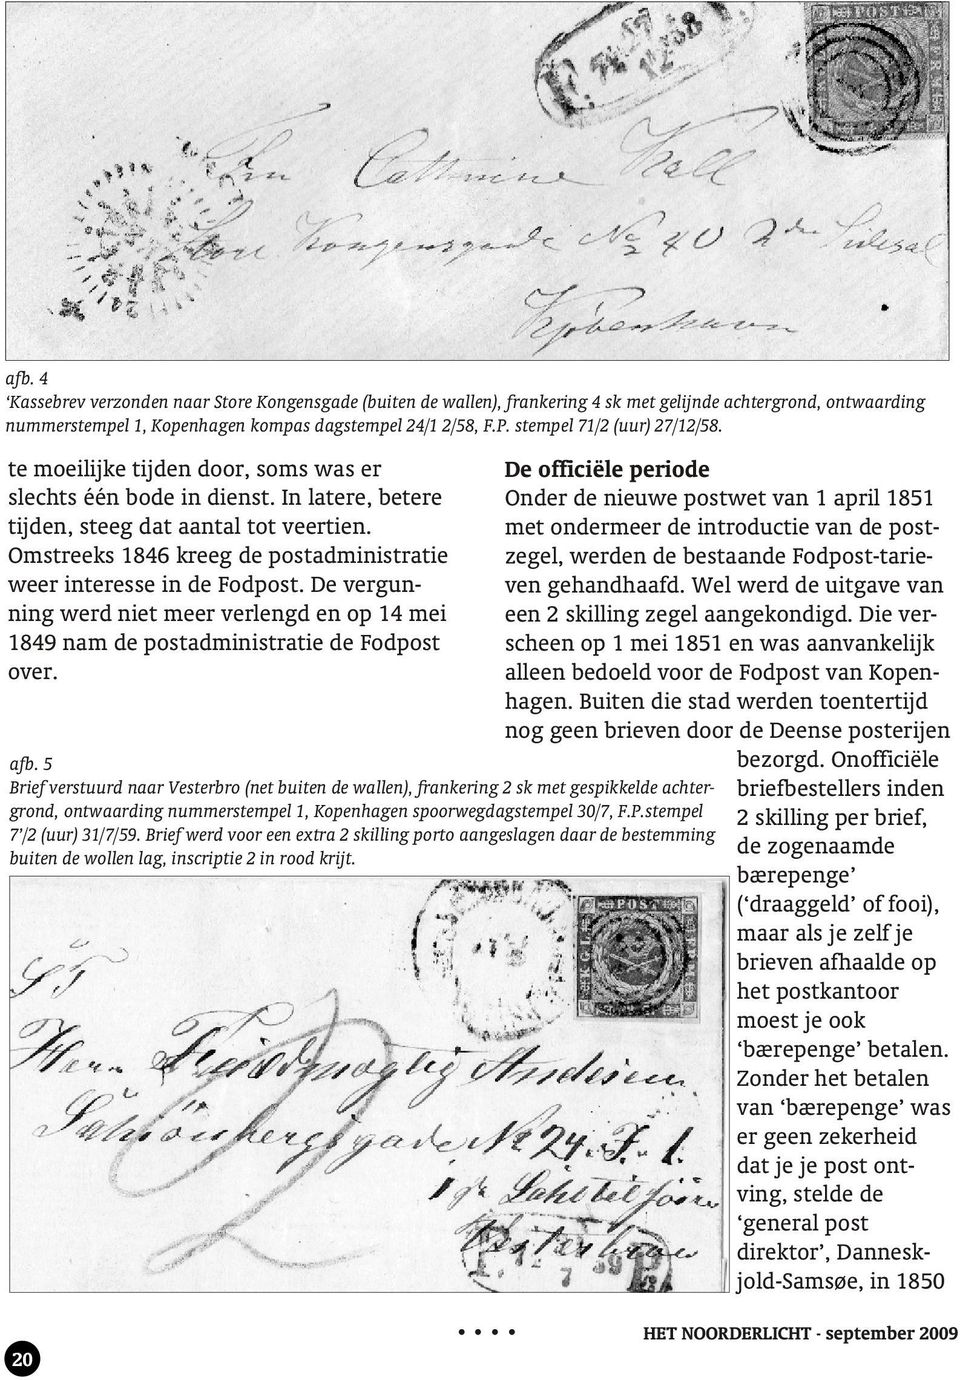 POST
Fru Cathrine Kall
Store Kongensgade No 40 2den Sidesal
Kjöbenhavn
afb. 4
‘Kassebrev verzonden naar Store Kongensgade (buiten de wallen), frankering 4 sk met gelijnde achtergrond, ontwaarding
nummerstempel 1, Kopenhagen kompas dagstempel 24/1 2/58, F.P. stempel 71/2 (uur) 27/12/58.
te moeilijke tijden door, soms was er
slechts één bode in dienst. In latere, betere
tijden, steeg dat aantal tot veertien.
Omstreeks 1846 kreeg de postadministratie
weer interesse in de Fodpost. De vergun-
ning werd niet meer verlengd en op 14 mei
1849 nam de postadministratie de Fodpost
over.
De officiële periode
Onder de nieuwe postwet van 1 april 1851
met ondermeer de introductie van de post-
zegel, werden de bestaande Fodpost-tarie-
ven gehandhaafd. Wel werd de uitgave van
een 2 skilling zegel aangekondigd. Die ver-
scheen op 1 mei 1851 en was aanvankelijk
alleen bedoeld voor de Fodpost van Kopen-
hagen. Buiten die stad werden toentertijd
nog geen brieven door de Deense posterijen
bezorgd. Onofficiële
briefbestellers inden
2 skilling per brief,
de zogenaamde
bærepenge’
(‘draaggeld’ of fooi),
maar als je zelf je
brieven afhaalde op
het postkantoor
moest je ook
‘bærepenge’ betalen.
Zonder het betalen
van ‘bærepenge’ was
er geen zekerheid
dat je je post ont-
ving, stelde de
‘general post
direktor’, Dannesk-
jold-Samsøe, in 1850
afb. 5
Brief verstuurd naar Vesterbro (net buiten de wallen), frankering 2 sk met gespikkelde achter-
grond, ontwaarding nummerstempel 1, Kopenhagen spoorwegdagstempel 30/7, F.P.stempel
7’/2 (uur) 31/7/59. Brief werd voor een extra 2 skilling porto aangeslagen daar de bestemming
buiten de wollen lag, inscriptie 2 in rood krijt.
POST
S T
Herr Fuldmægtig Andersen
2
No 24. F. 1.
Vesterbroe
• • • •
HET NOORDERLICHT - september 2009
20